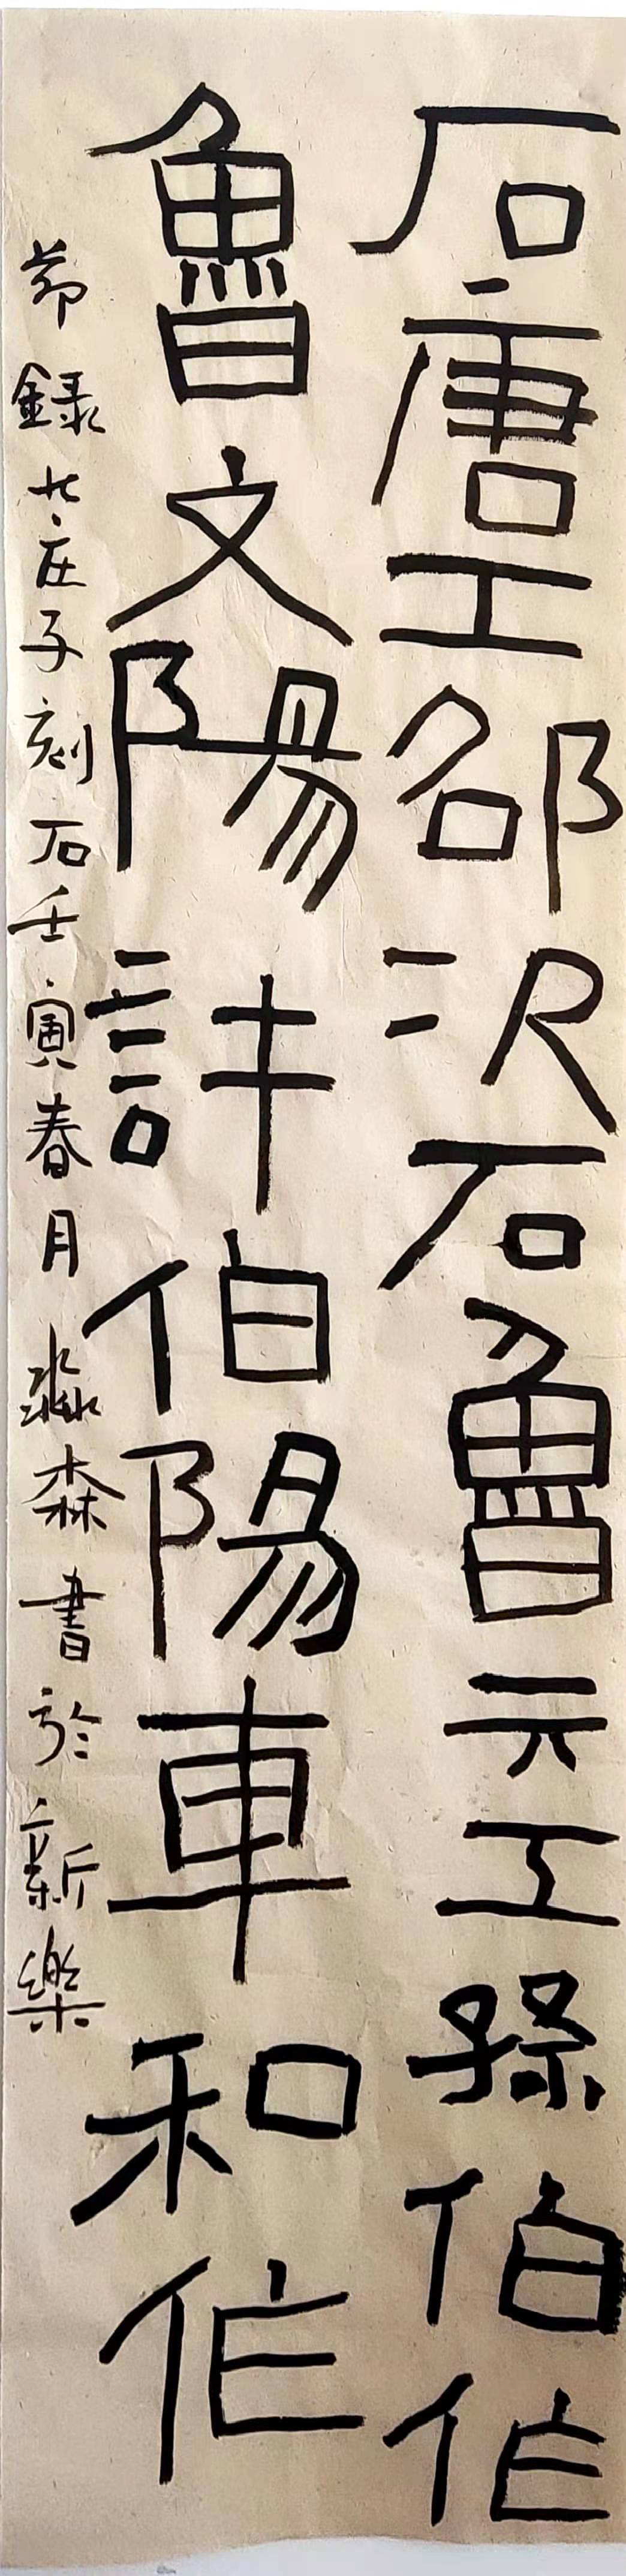 石唐工邵次石魯元工孫伯作
魯文陽許伯陽車和作
節録大庄子刻石壬寅春月淼森書於新樂